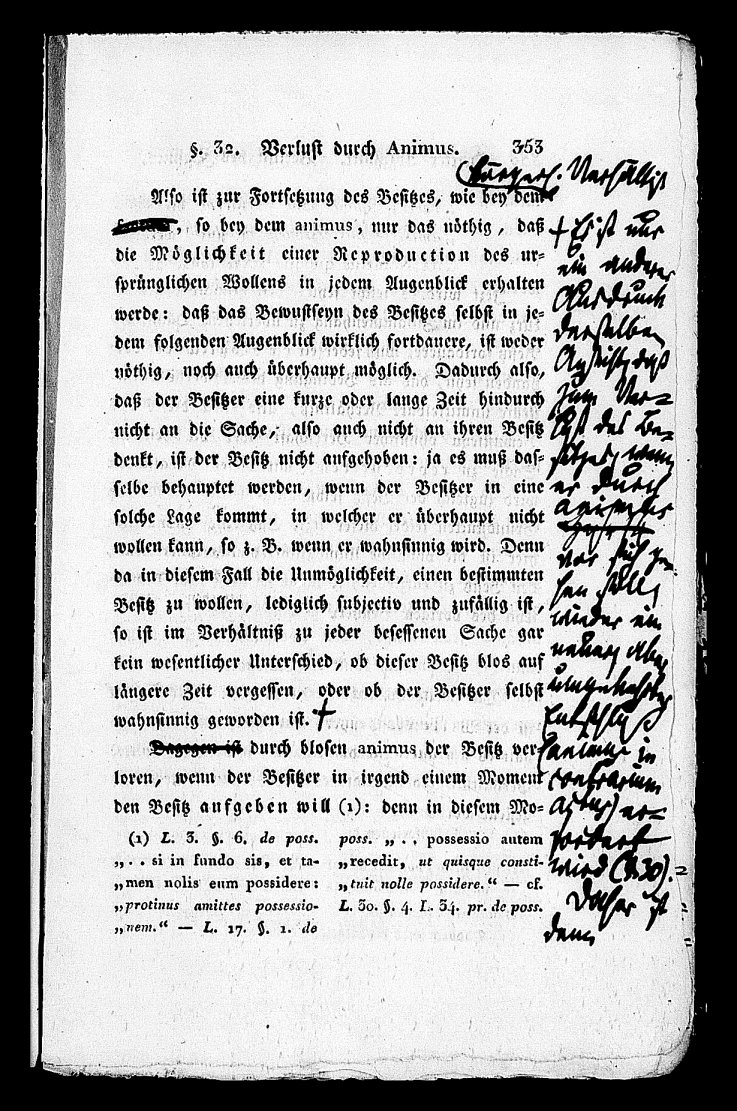 §. 32. Verlust durch Animus. 353
körperl. Verhältniß
Also ist zur Fortsetzung des Besitzes, wie bey dem
, so bey dem animus, nur das nöthig, daß
die Möglichkeit einer Reproduction des ur-
sprünglichen Wollens in jedem Augenblick erhalten
werde: daß das Bewustseyn des Besitzes selbst in je-
dem folgenden Augenblick wirklich fortdauere, ist weder
nöthig, noch auch überhaupt möglich. Dadurch also,
daß der Besitzer eine kurze oder lange Zeit hindurch
nicht an die Sache, also auch nicht an ihren Besitz
denkt, ist der Besitz nicht aufgehoben: ja es muß das-
selbe behauptet werden, wenn der Besitzer in eine
solche Lage kommt, in welcher er überhaupt nicht
wollen kann, so z. B. wenn er wahnsinnig wird. Denn
da in diesem Fall die Unmöglichkeit, einen bestimmten
Besitz zu wollen, lediglich subjectiv und zufällig ist,
so ist im Verhältniß zu jeder besessenen Sache gar
kein wesentlicher Unterschied, ob dieser Besitz blos auf
längere Zeit vergessen, oder ob der Besitzer selbst
wahnsinnig geworden ist. +
Dagegen ist durch blosen animus der Besitz ver-
loren, wenn der Besitzer in irgend einem Moment
den Besitz aufgeben will (1): denn in diesem Mo-
(1) L. 3. §. 6. de poss.
„ . . si in fundo sis, et ta-
„men nolis eum possidere:
„protinus amittes possessio-
„nem.“ — L. 17. §. 1. de
poss. „ . . possessio autem
„recedit, ut quisque consti-
„tuit nolle possidere.“ — cf.
L. 30. §. 4. L. 34. pr. de poss.
+ Es ist nur
ein anderer
Ausdruck
derselben
Ansicht, daß
zum Ver-
lust des Be-
sitzes, wenn
er durch
animus
vor sich ge-
hen soll,
wieder ein
neuer, aber
umgekehrter
Entschluß
(animus in
contrarium
actus) er-
fordert
wird (§ 30). =
Daher ist
denn